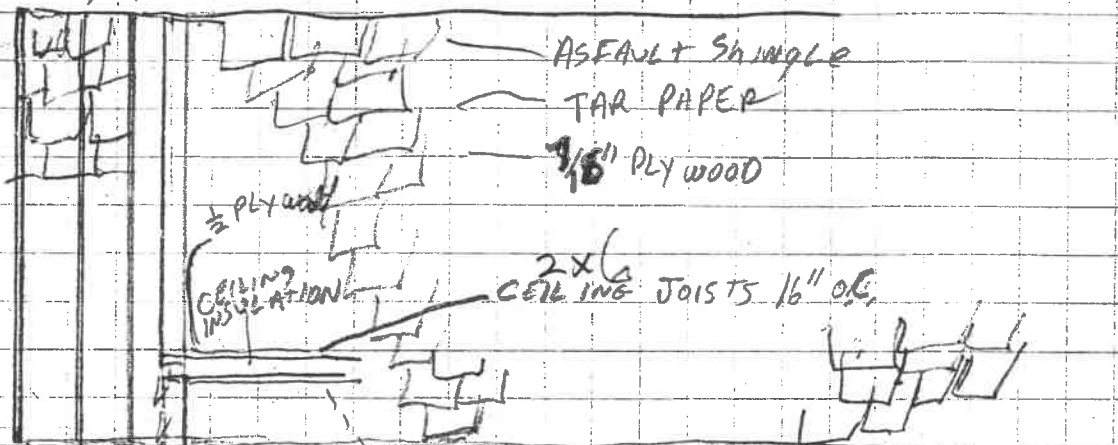 ASFAULT Shingle
TAR PAPER
PLYWOOD
1/2 PLYwood
CEILING
INSULATION
2x6
CEILING JOISTS 16" O.C.